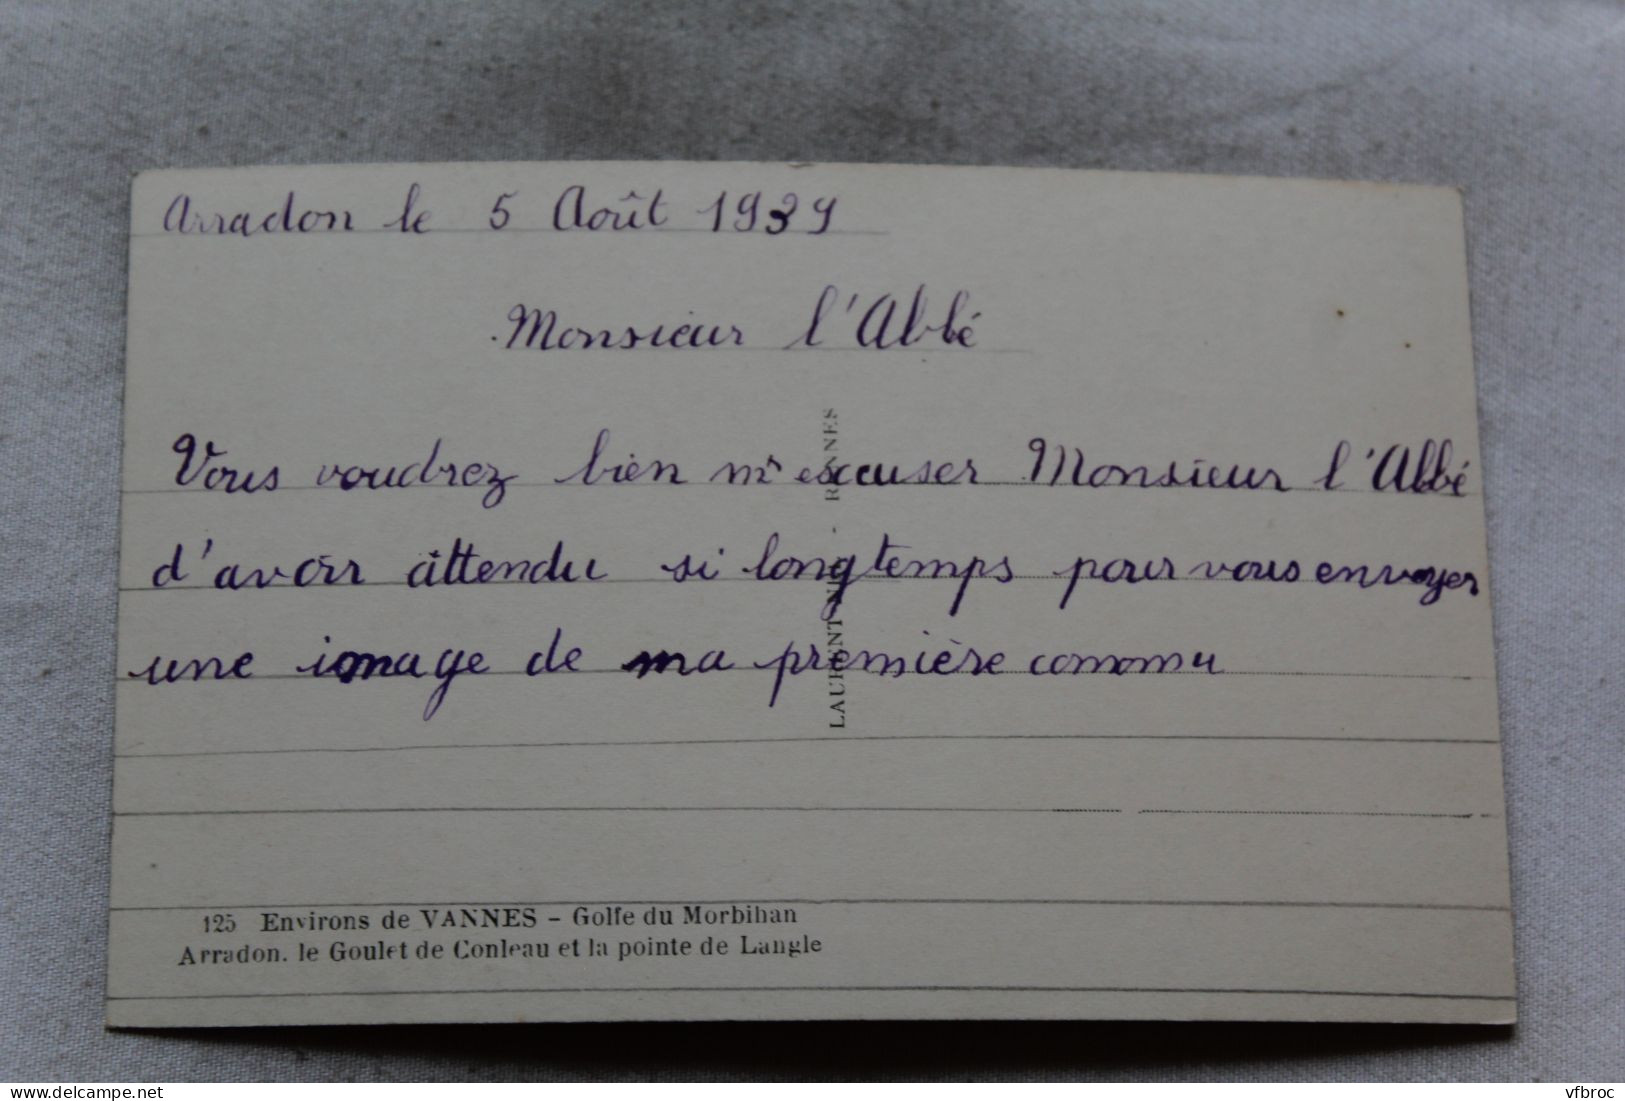 Arradon le 5 Août 1939
Monsieur l'Abbé
Vous voudrez bien m'excuser Monsieur l'Abbé
d'avoir attendu si longtemps pour vous envoyer
une image de ma première commu
LAURENT NEL - RENNES
125 Environs de VANNES - Golfe du Morbihan
Arradon. le Goulet de Conleau et la pointe de Langle
www.delcampe.net
vfbroc